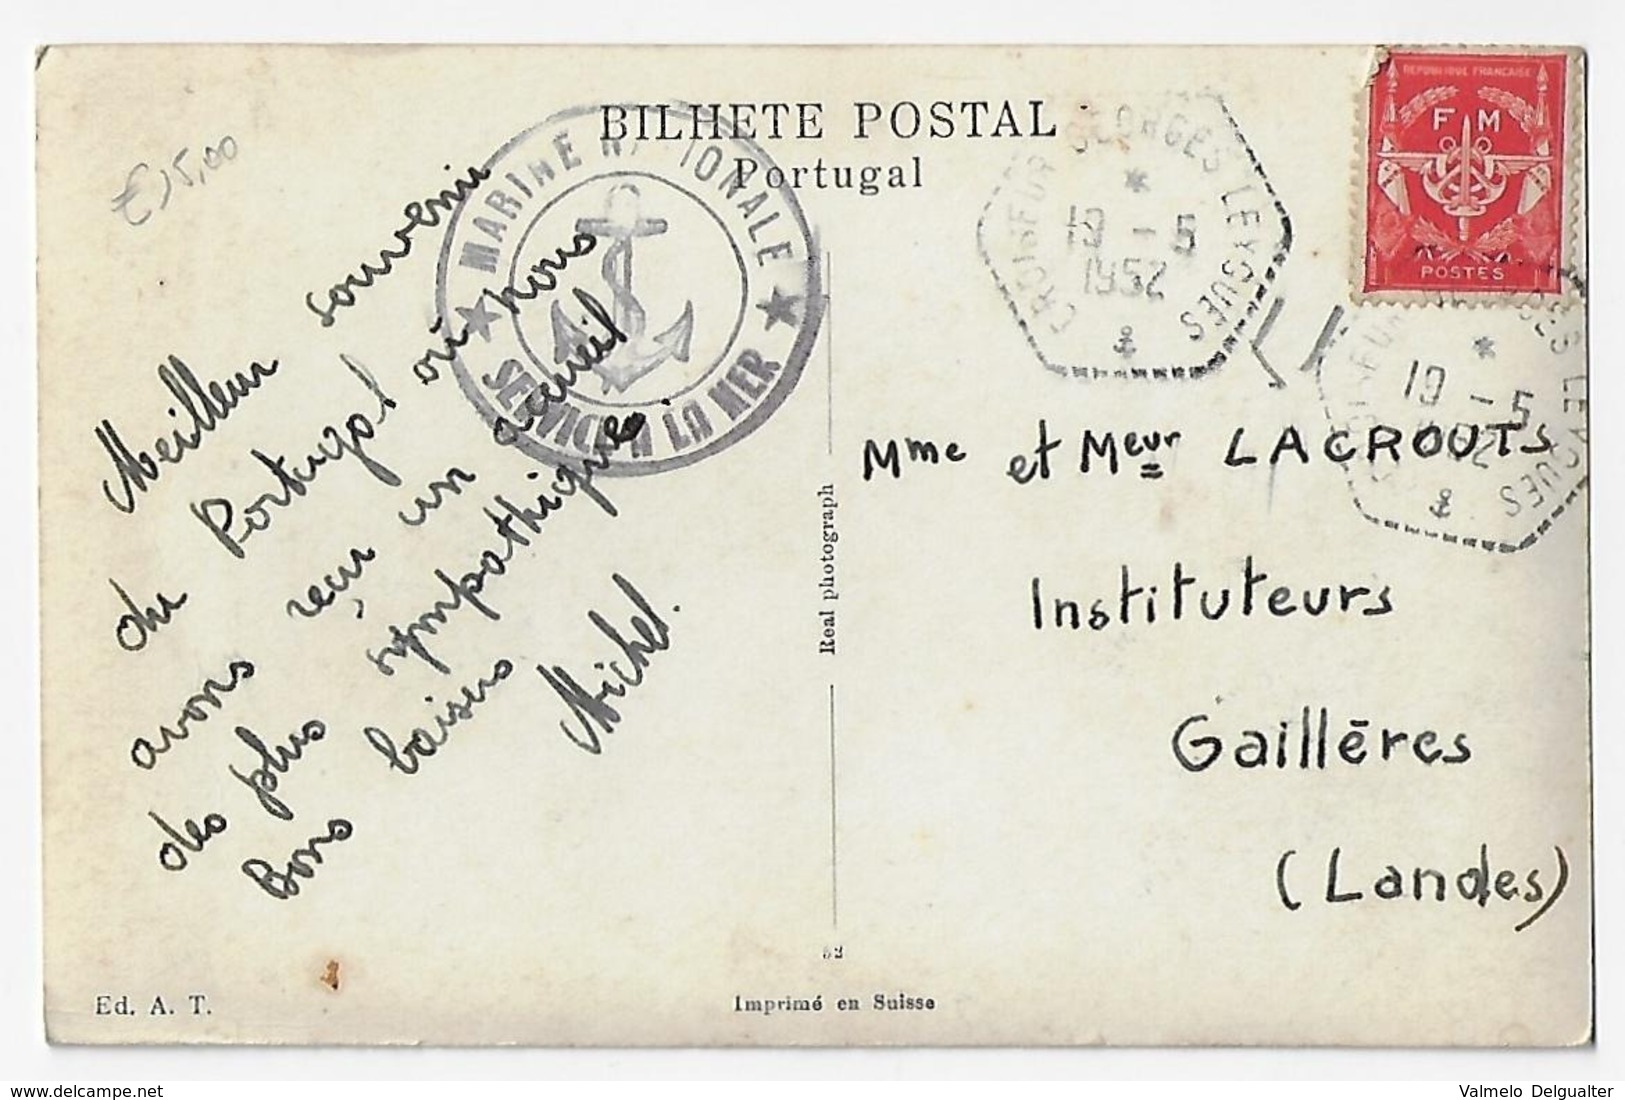 BILHETE POSTAL
Portugal
€15,00
MARINE NATIONALE
SERVICE A LA MER
CROISEUR GEORGES LEYGUES
19 - 5
1952
REPUBLIQUE FRANÇAISE
F M
POSTES
19 - 5
Meilleur souvenir
du Portugal où nous
avons reçu un acceuil
des plus sympathiques.
Bons baisers
Michel.
Mme et Meur LACROUTS
Instituteurs
Gaillères
(Landes)
Real photograph
52
Ed. A. T.
Imprimé en Suisse
delcampe.net
Valmelo Delgualter